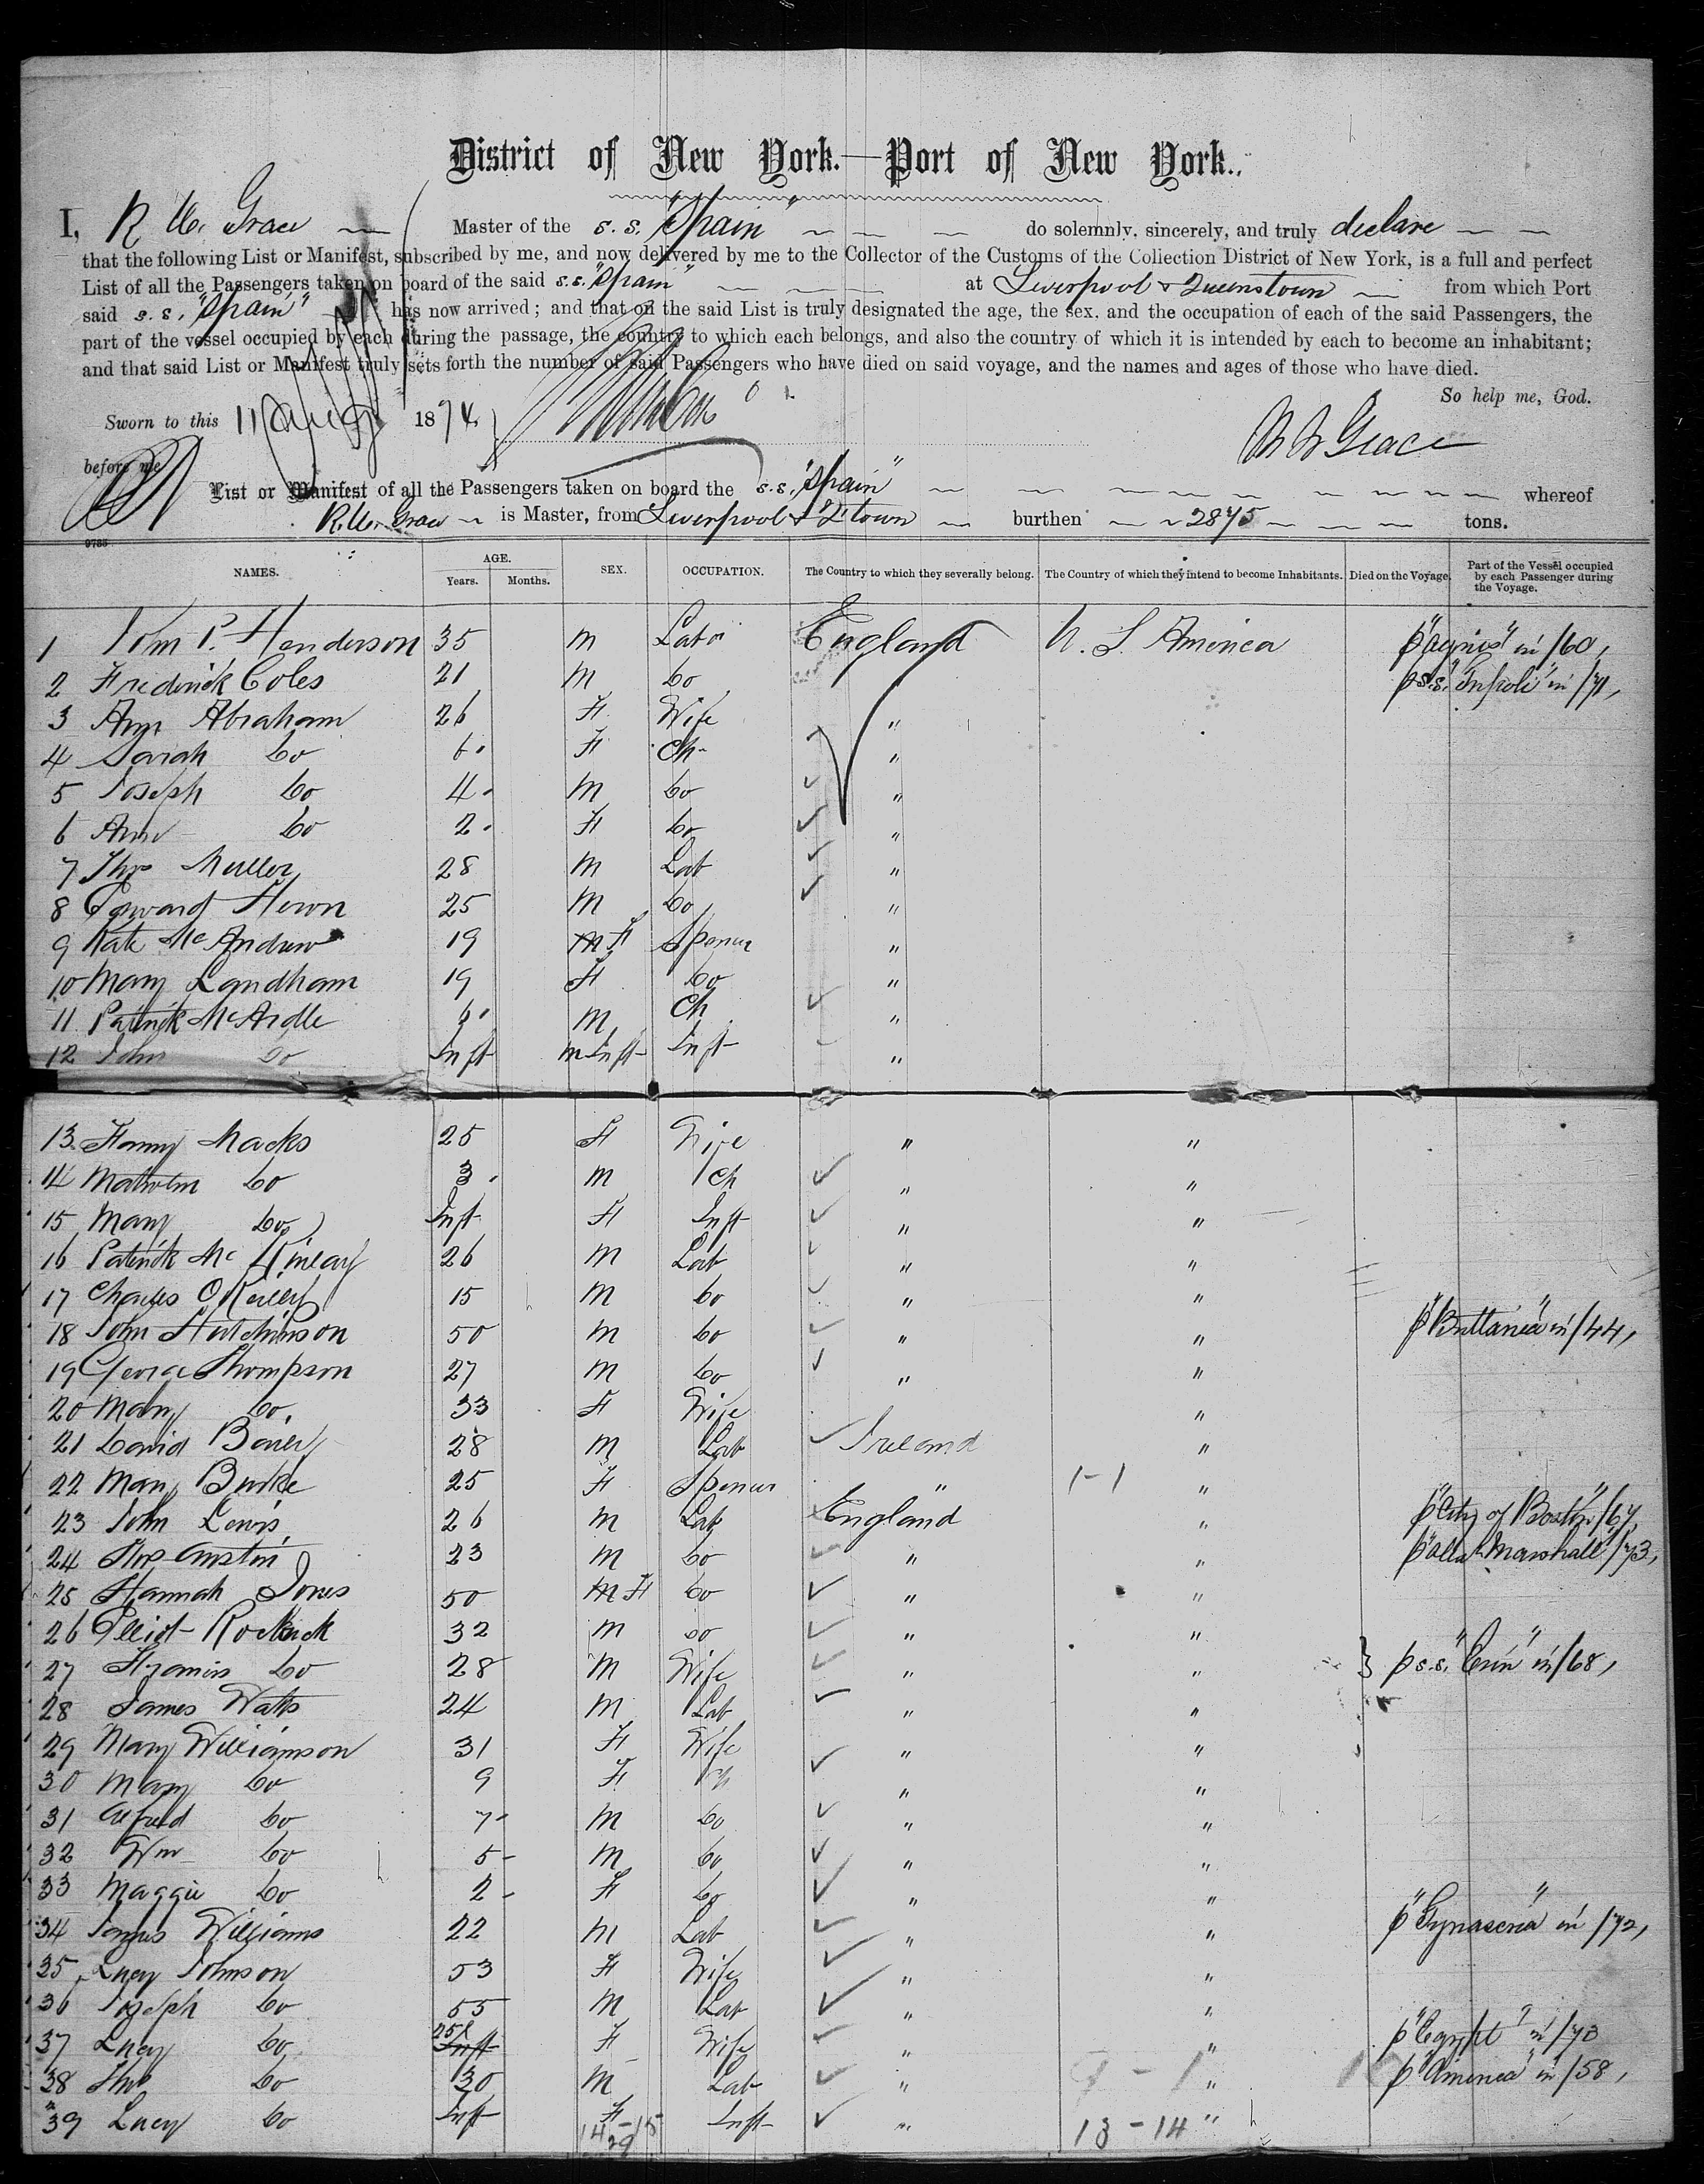 District of New York.—Port of New York.
I, R W. Grace Master of the s. s. "Spain" do solemnly, sincerely, and truly declare
that the following List or Manifest, subscribed by me, and now delivered by me to the Collector of the Customs of the Collection District of New York, is a full and perfect
List of all the Passengers taken on board of the said s.s. "Spain" at Liverpool & Queenstown from which Port
said s. s. "Spain" has now arrived; and that on the said List is truly designated the age, the sex, and the occupation of each of the said Passengers, the
part of the vessel occupied by each during the passage, the country to which each belongs, and also the country of which it is intended by each to become an inhabitant;
and that said List or Manifest truly sets forth the number of said Passengers who have died on said voyage, and the names and ages of those who have died.
So help me, God.
Sworn to this 11 Augt 1874
R W Grace
before me
List or Manifest of all the Passengers taken on board the s.s. "Spain" whereof
R.W. Grace is Master, from Liverpool & Q'town burthen 2875 tons.
9785
NAMES. AGE. Years. Months. SEX. OCCUPATION. The Country to which they severally belong. The Country of which they intend to become Inhabitants. Died on the Voyage. Part of the Vessel occupied by each Passenger during the Voyage.
1 John P. Henderson 35 M Labr England U. S. America in /60,
2 Frederick Coles 21 M Do p s.s. in /71,
3 Ann Abraham 26 F Wife "
4 Sarah Do 6 F Ch "
5 Joseph Do 4 M Do "
6 Ann Do 2 F Do "
7 Thos Muller 28 M Lab "
8 Edward Heron 25 M Do "
9 Kate McAndrew 19 F Spinr "
10 Mary Landham 19 F Do "
11 Patrick McArdle M Ch "
12 John Do Inft M Inft Inft "
13 Fanny Macks 25 F Wife " "
14 Malcolm Do 3 M Ch " "
15 Mary Do Inft F Inft " "
16 Patrick Mc 26 M Lab " "
17 Charles O'Reilly 15 M Do " "
18 John Hutchinson 50 M Do " " p "Brittania" in /44,
19 George Thompson 27 M Do " "
20 Mary Do 33 F Wife "
21 David 28 M Lab Ireland "
22 Mary Burke 25 F Spinr " 1-1 "
23 John Lewis 26 M Lab England " p "City of Boston" /67,
24 Thos Austin 23 M Do " " p Marshall" /73,
25 Hannah Jones 50 F Do " "
26 Elliot 32 M Do " "
27 Francis Do 28 M Wife " " } p s.s. "Erin" in /68,
28 James Watts 24 M Lab " "
29 Mary Williamson 31 F Wife " "
30 Mary Do 9 F Ch " "
31 Alfred Do 7 M Do " "
32 Wm Do 5 M Do " "
33 Maggie Do 2 F Do " "
34 James Williams 22 M Lab " " in /72,
35 Lucy Johnson 53 F Wife " "
36 Joseph Do 55 M Lab " "
37 Lucy Do 25 F Wife " " p "Egypt" in /73
38 Thos Do 30 M Lab " 9 - 1 " p "America" in /58,
39 Lucy Do Inft F Inft " 13 - 14 "
14 - 15
29